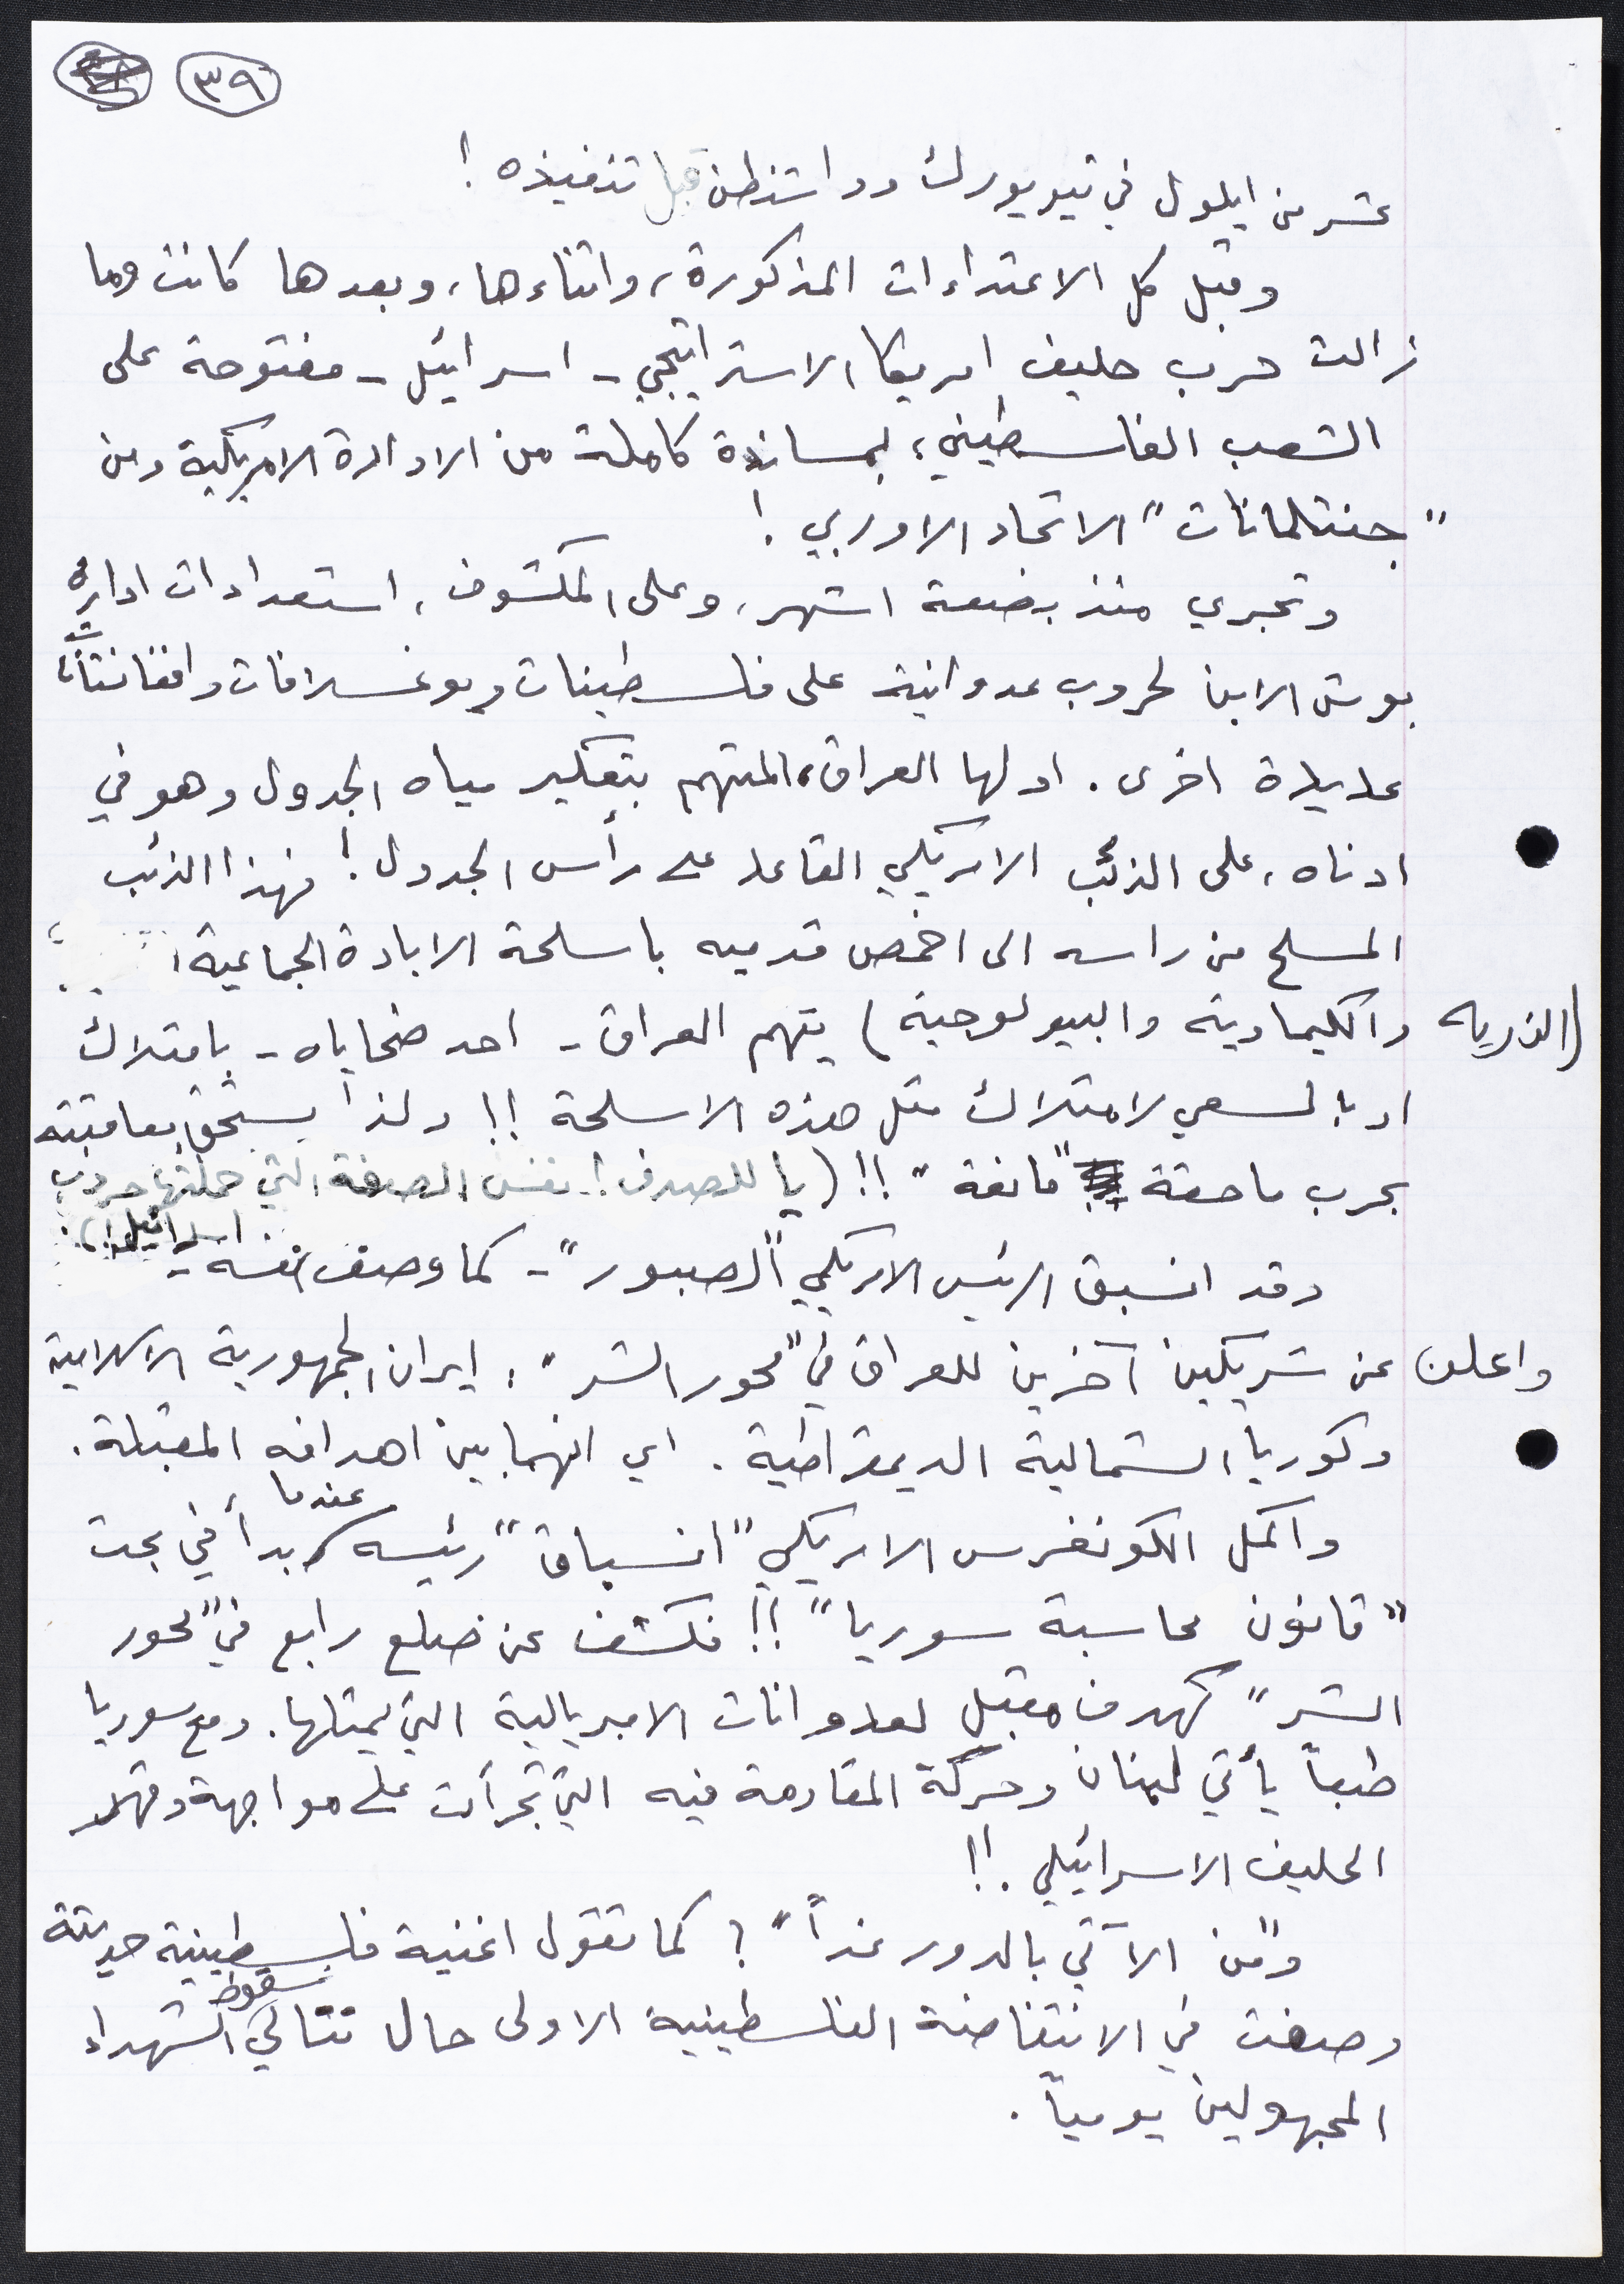 ٣٩
عشر من ايلول في نيويورك وواشنطن قبل تنفيذه !
وقبل كل الاعتداءات المذكورة، واثناءها، وبعدها كانت وما
زالت حرب حليف امريكا الاستراتيجي - اسرائيل - مفتوحة على
الشعب الفلسطيني، بمساندة كاملة من الادارة الامريكية ومن
"جنتلمانات" الاتحاد الاوربي !
وتجري منذ بضعة اشهر، وعلى المكشوف، استعدادات ادارة
بوش الابن لحروب عدوانية على فلسطينات ويوغسلافات وافغانستانات
عديدة اخرى. اولها العراق، المتهم بتعكير مياه الجدول وهو في
ادناه، على الذئب الامريكي القاعد على رأس الجدول ! فهذا الذئب
المسلح من راسه الى اخمص قدميه باسلحة الابادة الجماعية
(الذرية والكيماوية والبيولوجية) يتهم العراق - احد ضحاياه - بامتلاك
او بالسعي لامتلاك مثل هذه الاسلحة !! ولذا يستحق معاقبته
بحرب ماحقة "مانعة" !! (يا للصدف ! نفس الصفة التي حملتها حروب
اسرائيل !).
وقد انسبق الرئيس الامريكي "الصبور" - كما وصف نفسه -
واعلن عن شريكين آخرين للعراق في "محور الشر"، ايران الجمهورية الاسلامية
وكوريا الشمالية الديمقراطية. اي انهما بين اهدافه المقبلة.
واكمل الكونغرس الامريكي "انسباق" رئيسه عندما بدأ في بحث
"قانون محاسبة سوريا" !! فكشف عن ضلع رابع في "محور
الشر" كهدف مقبل لعدوانات الامبريالية التي يمثلها. ومع سوريا
طبعاً يأتي لبنان وحركة المقاومة فيه التي تجرأت على مواجهة وقهر
الحليف الاسرائيلي !!
و"من الآتي بالدور غداً" ؟ كما تقول اغنية فلسطينية حديثة
وصفت في الانتفاضة الفلسطينية الاولى حال تتالي سقوط الشهداء
المجهولين يومياً.